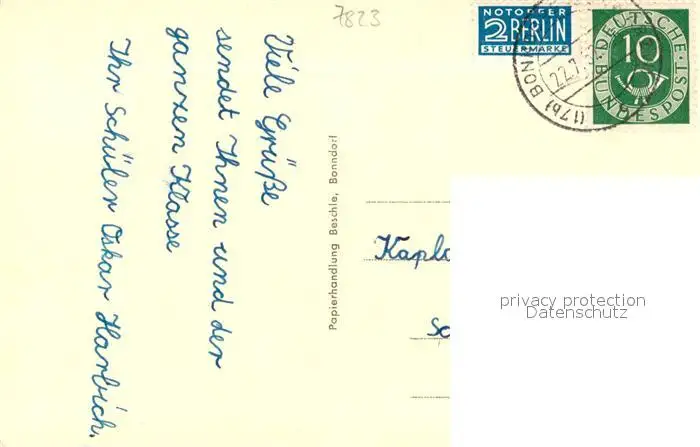 7823
NOTOPFER
2 BERLIN
STEUERMARKE
DEUTSCHE BUNDESPOST
10
(17b) BON
22.7.
Viele Grüße
sendet Ihnen und der
ganzen Klasse
Ihr Schüler Oskar Harbich.
Papierhandlung Beschle, Bonndorf
Kapl
privacy protection
Datenschutz